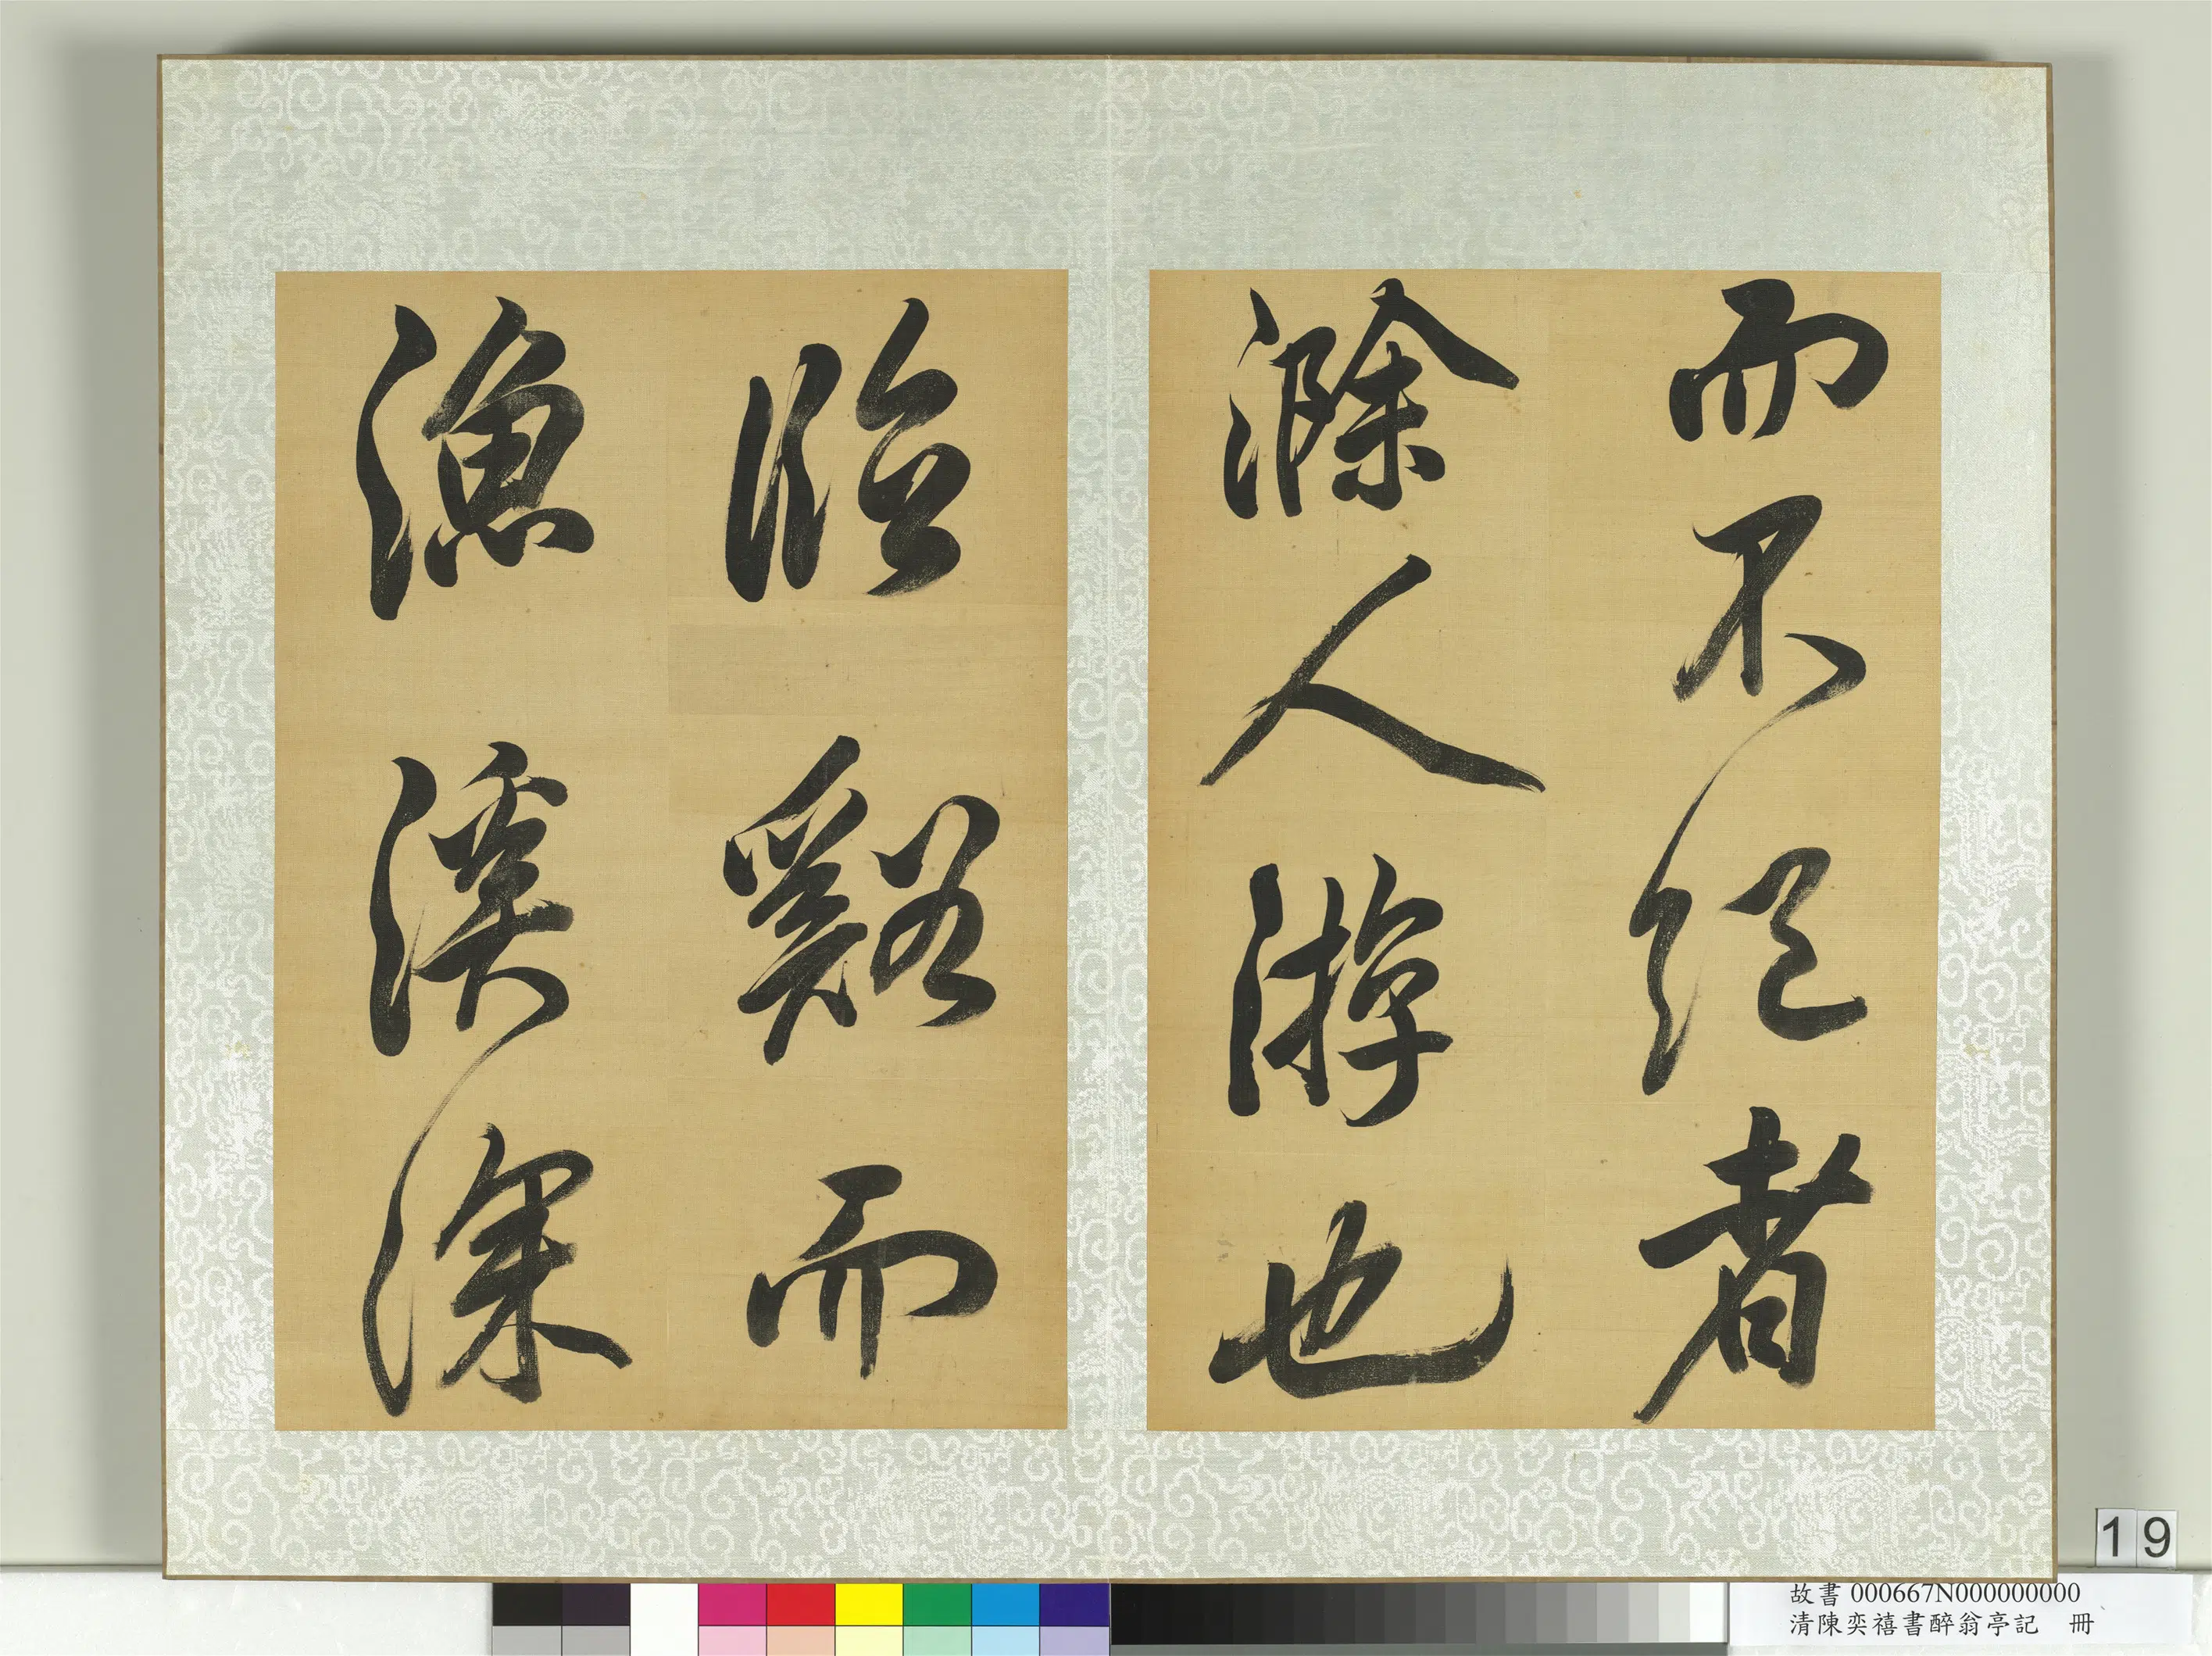 而不絕者
滁人游也
臨谿而
漁溪深
19
故書 000667N000000000
清陳奕禧書醉翁亭記 冊